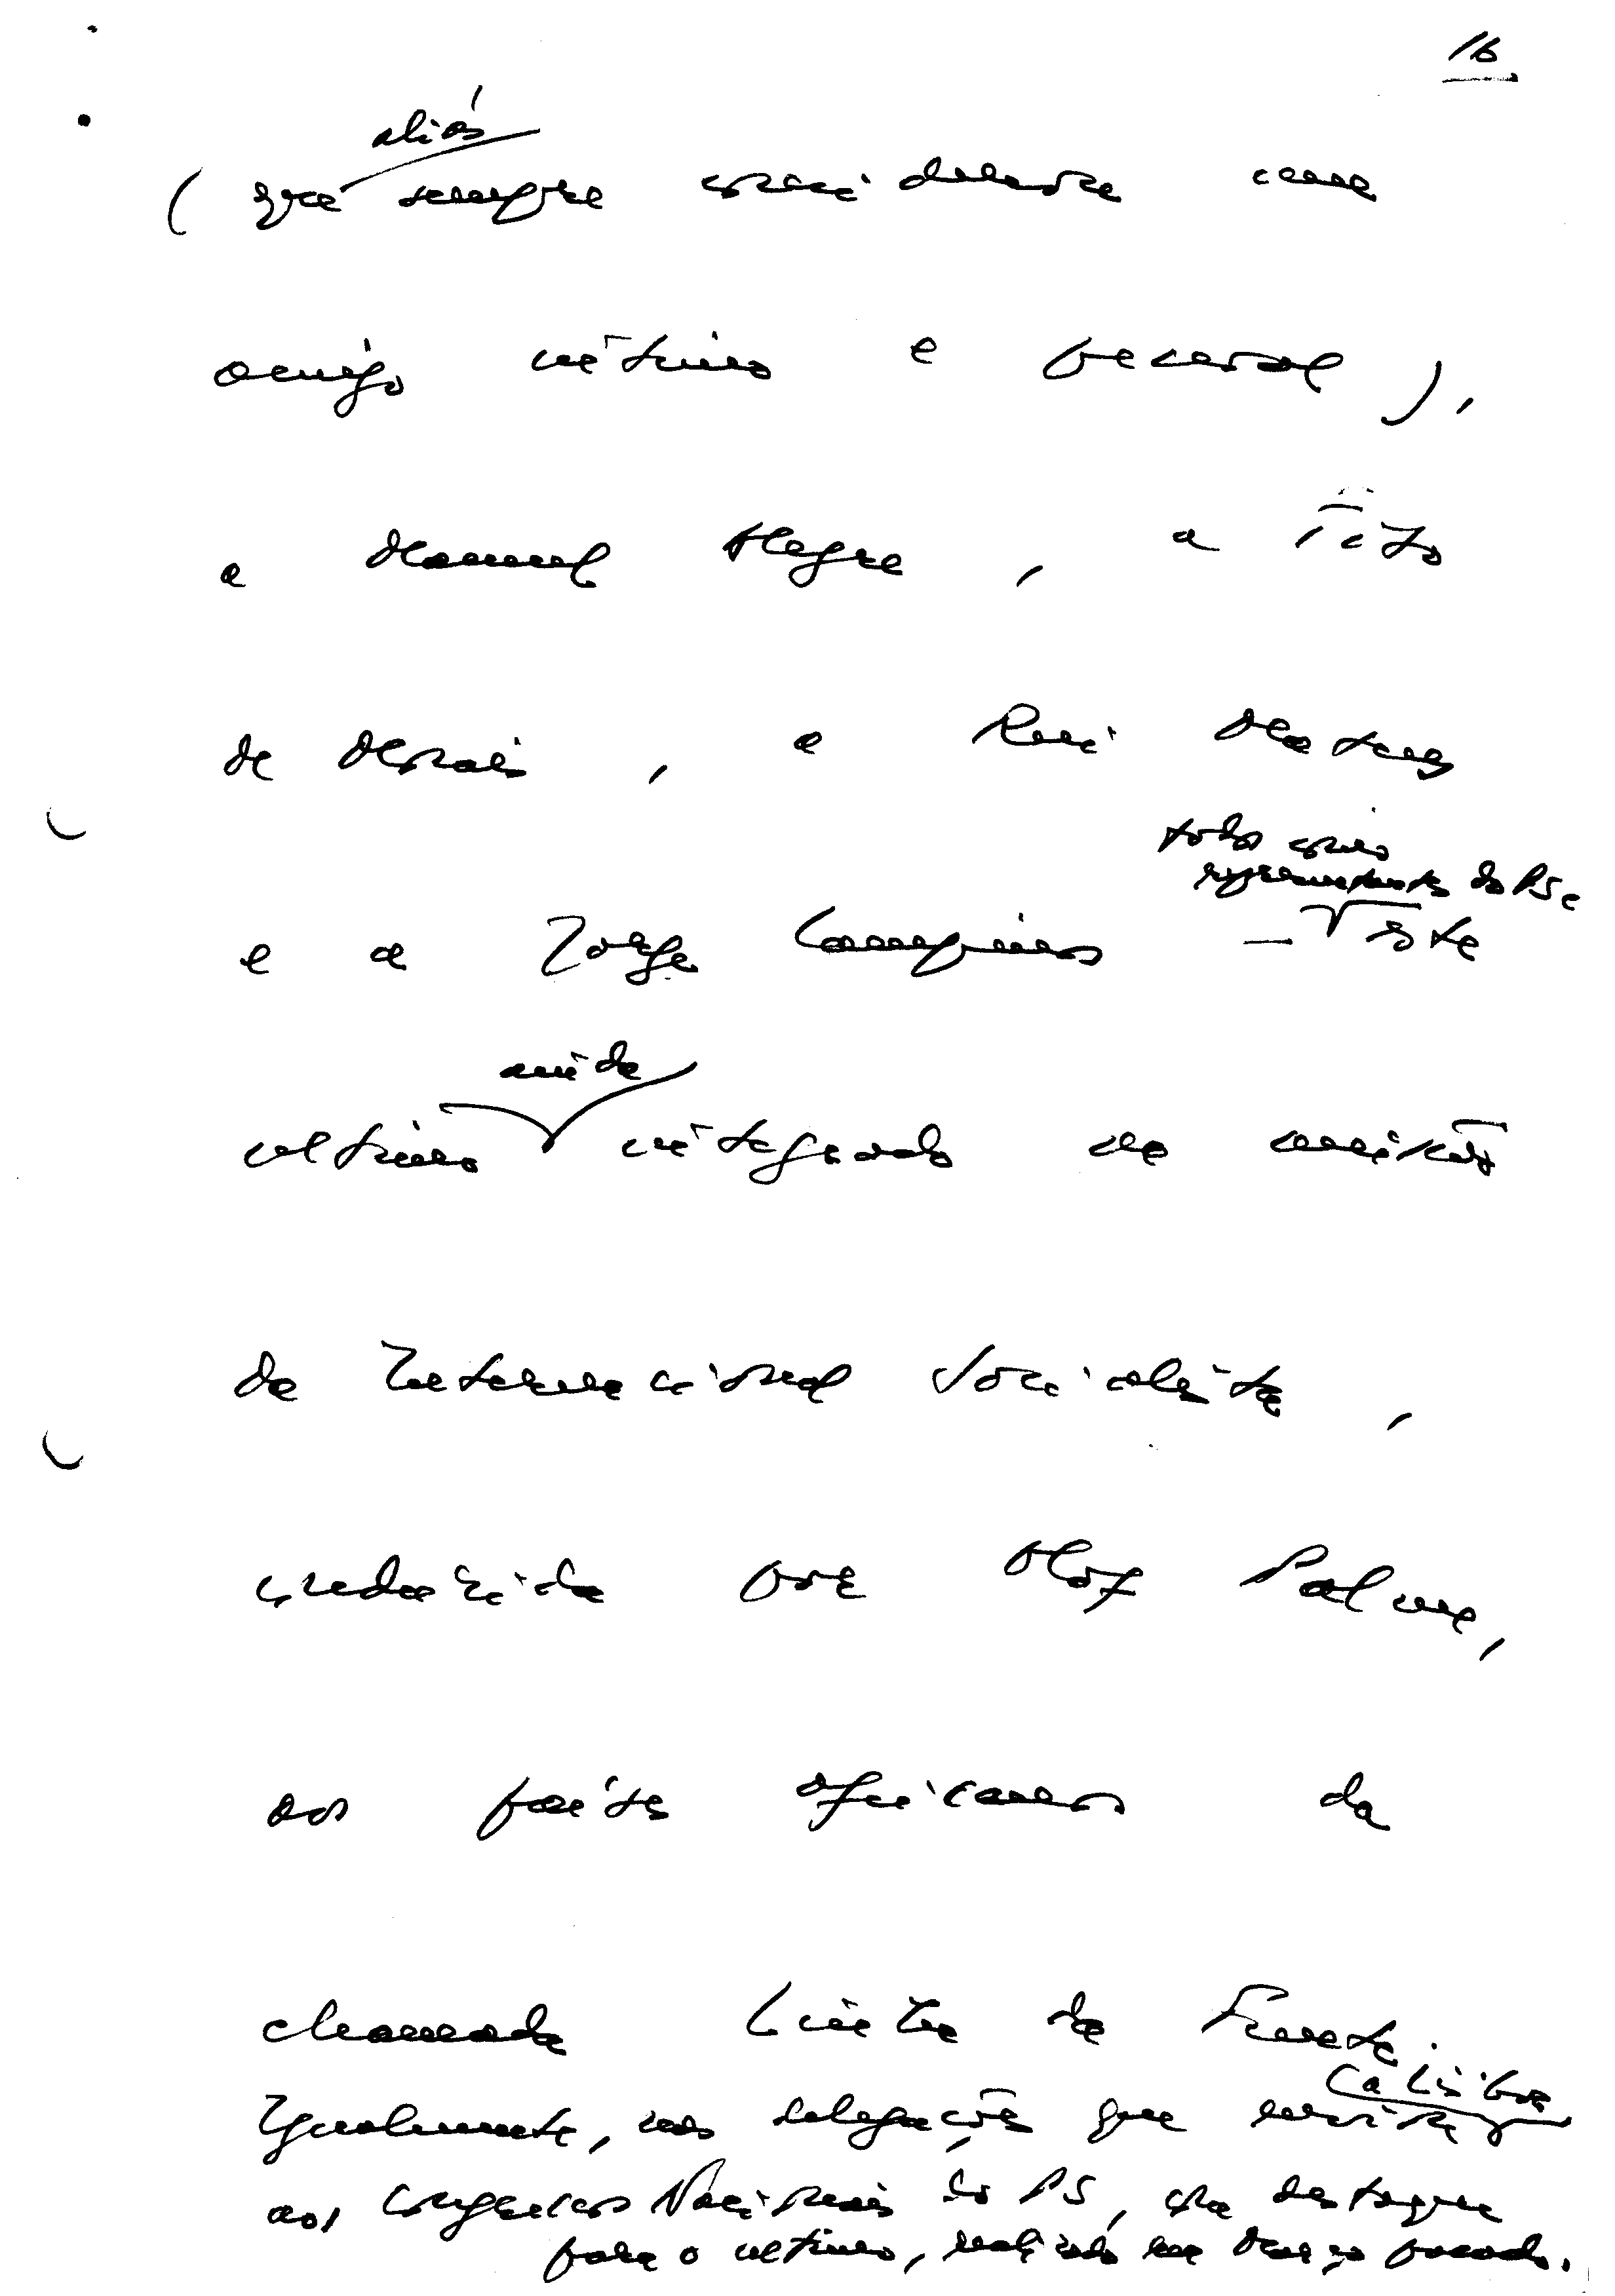 16
aliás
( que sempre considerou um
amigo íntimo e pessoal ),
a Manuel Alegre, a Tito
de Morais, a Rui Mateus
todos como
representantes do PS e
e a Jorge Campinos — este
ainda
último integrado na missão
da Internacional Socialista,
conduzida por Olof Palme,
aos países da
chamada Linha da Frente.
(a Lisboa
Igualmente, nas delegações que enviou
aos Congressos Nacionais do PS, com destaque
para o último, realizado em Março passado.